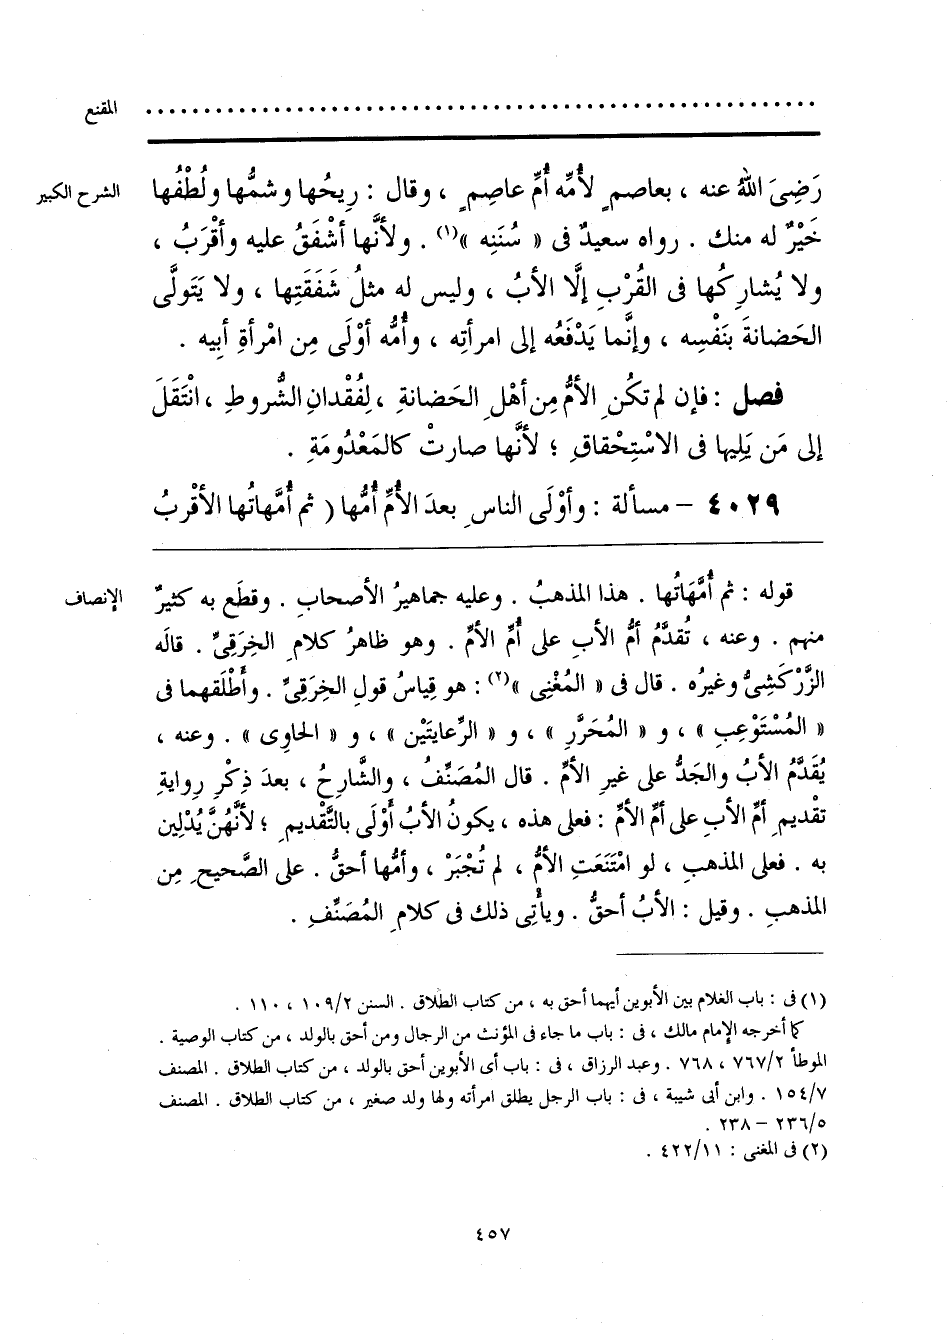 المقنع ........................................................
الشرح الكبير
رَضِىَ اللهُ عنه ، بعاصمٍ لأُمِّه أُمِّ عاصِمٍ ، وقال : رِيحُها وشمُّها ولُطْفُها
خَيْرٌ له منك . رواه سعيدٌ فى « سُنَنِه »(١) . ولأنَّها أشْفَقُ عليه وأقْرَبُ ،
ولا يُشارِكُها فى القُرْبِ إلَّا الأبُ ، وليس له مثلُ شَفَقَتِها ، ولا يَتَولَّى
الحَضانةَ بنَفْسِه ، وإنَّما يَدْفَعُه إلى امرأتِه ، وأُمُّه أوْلَى مِن امْرأةِ أبِيه .
فصل : فإن لم تكُنِ الأمُّ مِن أهْلِ الحَضانةِ ، لِفُقْدانِ الشُّروطِ ، انْتَقَلَ
إلى مَن يَلِيها فى الاسْتِحْقاقِ ؛ لأنَّها صارتْ كالمَعْدُومَةِ .
٤٠٢٩ – مسألة : وأوْلَى الناسِ بعدَ الأُمِّ أُمُّها ( ثم أُمَّهاتُها الأقْربُ
الإنصاف
قوله : ثم أُمَّهَاتُها . هذا المذهبُ . وعليه جماهيرُ الأصحابِ . وقطَع به كثيرٌ
منهم . وعنه ، تُقدَّمُ أمُّ الأبِ على أُمِّ الأمِّ . وهو ظاهرُ كلامِ الخِرَقِىِّ . قالَه
الزَّرْكَشِىُّ وغيرُه . قال فى « المُغْنِى »(٢) : هو قِياسُ قولِ الخِرَقِىِّ . وأطْلَقهما فى
« المُسْتَوْعِبِ » ، و « المُحَرَّرِ » ، و « الرِّعايتَيْن » ، و « الحاوِى » . وعنه ،
يُقَدَّمُ الأبُ والجَدُّ على غيرِ الأمِّ . قال المُصَنِّفُ ، والشَّارِحُ ، بعدَ ذِكْرِ رِوايةِ
تقْديمِ أمِّ الأبِ على أمِّ الأمِّ : فعلى هذه ، يكونُ الأبُ أَوْلَى بالتَّقْديمِ ؛ لأنَّهُنَّ يُدْلِين
به . فعلى المذهبِ ، لو امْتَنَعَتِ الأمُّ ، لم تُجْبَرْ ، وأمُّها أحقُّ . على الصَّحيحِ مِن
المذهبِ . وقيل : الأبُ أحقُّ . ويأْتِى ذلك فى كلامِ المُصَنِّفِ .
(١) فى : باب الغلام بين الأبوين أيهما أحق به ، من كتاب الطلاق . السنن ١٠٩/٢ ، ١١٠ .
كما أخرجه الإمام مالك ، فى : باب ما جاء فى المؤنث من الرجال ومن أحق بالولد ، من كتاب الوصية .
الموطأ ٧٦٧/٢ ، ٧٦٨ . وعبد الرزاق ، فى : باب أى الأبوين أحق بالولد ، من كتاب الطلاق . المصنف
١٥٤/٧ . وابن أبى شيبة ، فى : باب الرجل يطلق امرأته ولها ولد صغير ، من كتاب الطلاق . المصنف
٢٣٦/٥ – ٢٣٨ .
(٢) فى المغنى : ٤٢٢/١١ .
٤٥٧